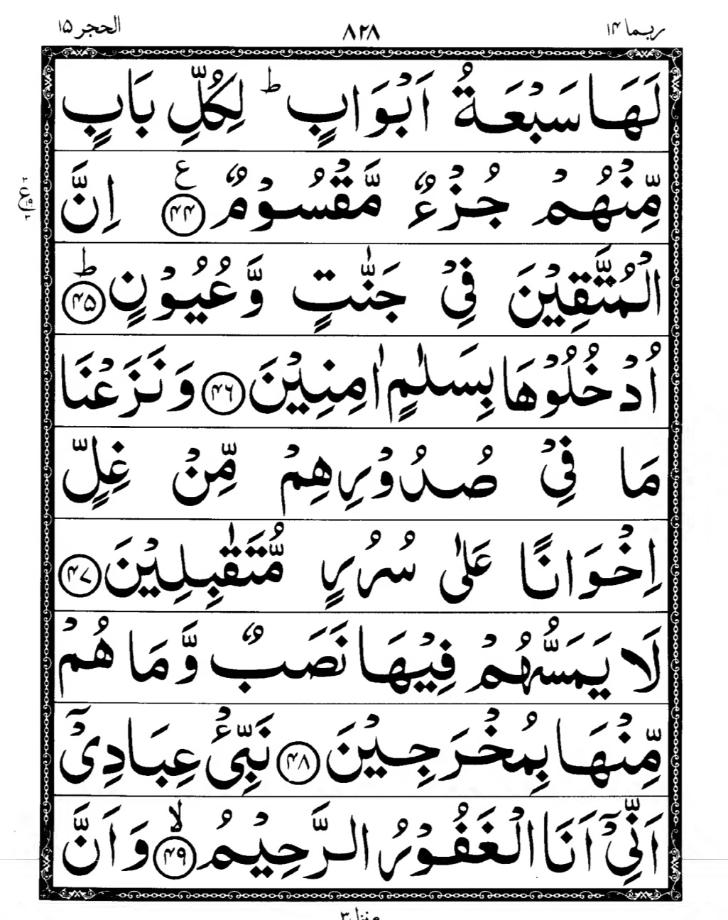 ربما ۱۴ ۸۲۸ الحجر ۱۵
لَهَا سَبْعَةُ اَبْوَابٍ ؕ لِكُلِّ بَابٍ
مِّنْهُمْ جُزْءٌ مَّقْسُوْمٌ ﴿۴۴﴾ ع اِنَّ
الْمُتَّقِيْنَ فِيْ جَنّٰتٍ وَّعُيُوْنٍ ﴿۴۵﴾ؕ
اُدْخُلُوْهَا بِسَلٰمٍ اٰمِنِيْنَ ﴿۴۶﴾ وَنَزَعْنَا
مَا فِيْ صُدُوْرِهِمْ مِّنْ غِلٍّ
اِخْوَانًا عَلٰى سُرُرٍ مُّتَقٰبِلِيْنَ ﴿۴۷﴾
لَا يَمَسُّهُمْ فِيْهَا نَصَبٌ وَّمَا هُمْ
مِّنْهَا بِمُخْرَجِيْنَ ﴿۴۸﴾ نَبِّئْ عِبَادِيْۤ
اَنِّيْۤ اَنَا الْغَفُوْرُ الرَّحِيْمُ ﴿۴۹﴾ۙ وَاَنَّ
منزل ۳